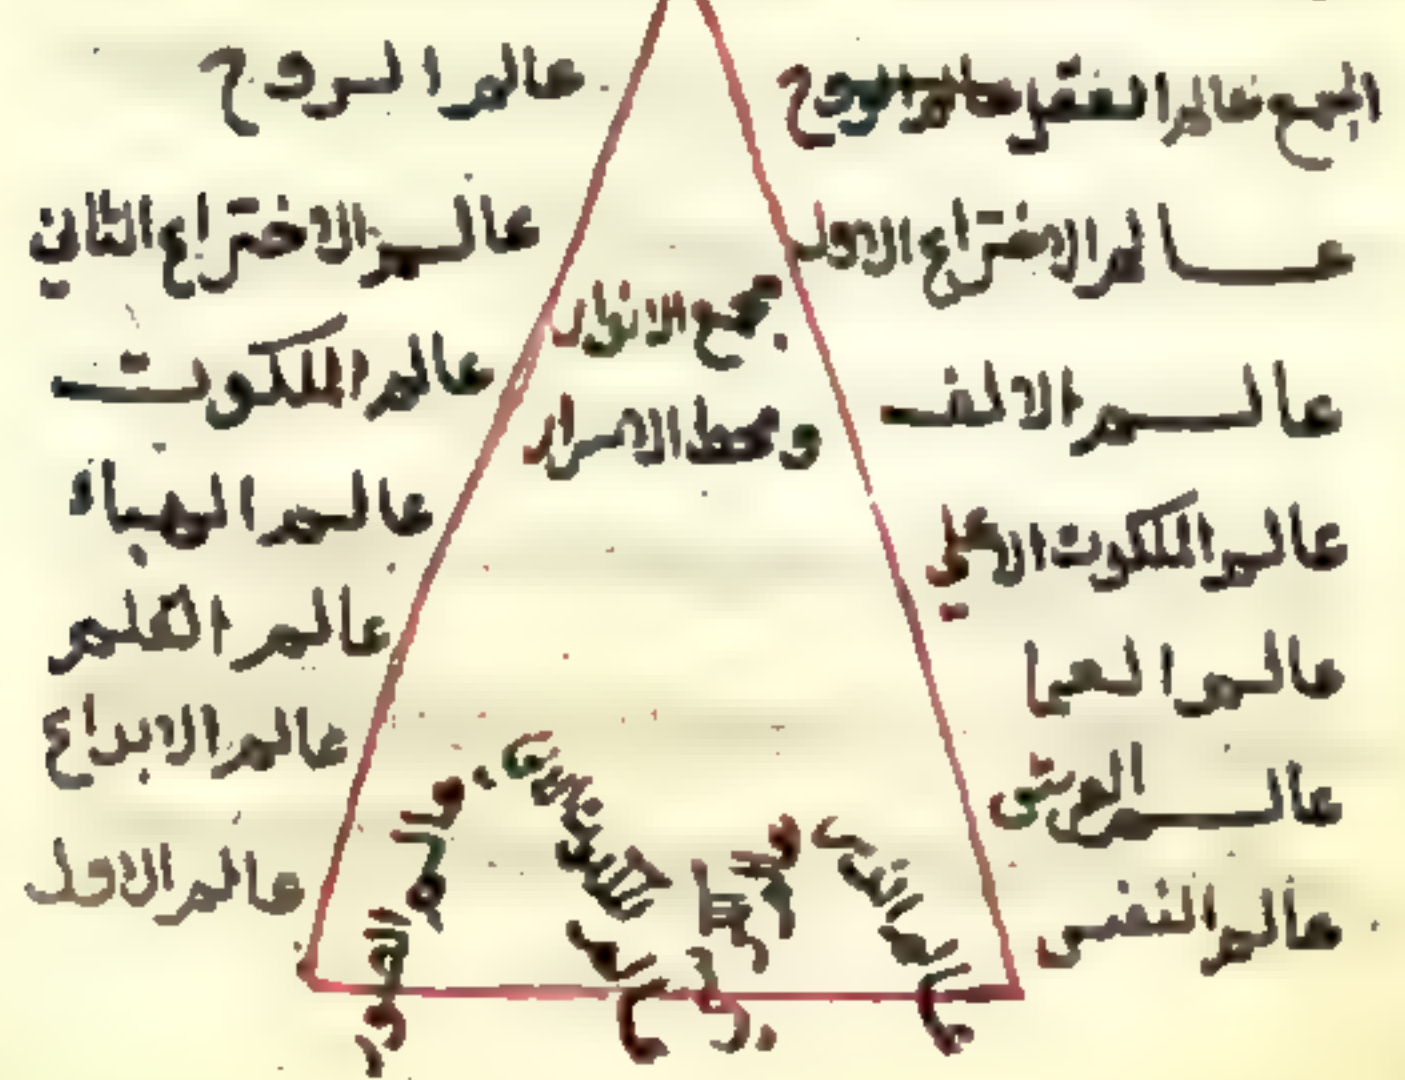 الجمع عالم العقل عالم الروح
عالم الاختراع الاول
عالم الالف
عالم الملكوت الاعلي
عالم العما
عالم العرش
عالم النفس
مجمع الانوار
ومحط الاسرار
عالم الروح
عالم الاختراع الثاني
عالم الملكوت
عالم الهباء
عالم القلم
عالم الابداع
عالم الاول
عالم
عالم
وعالم الصور